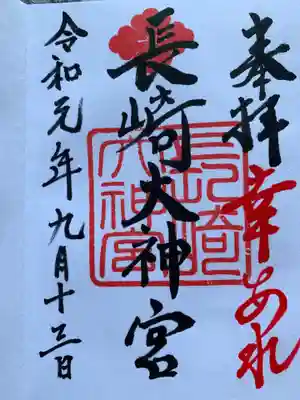 奉拝
幸あれ
長崎大神宮
長崎大神宮
令和元年九月十三日